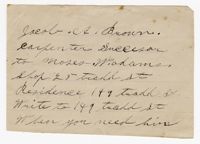 Jacob A. C. Brown.
Carpenter Successor
to Moses W adams
Shop 25 tradd St
Residence 149 tradd St
Write to 149 tradd St
When you need him